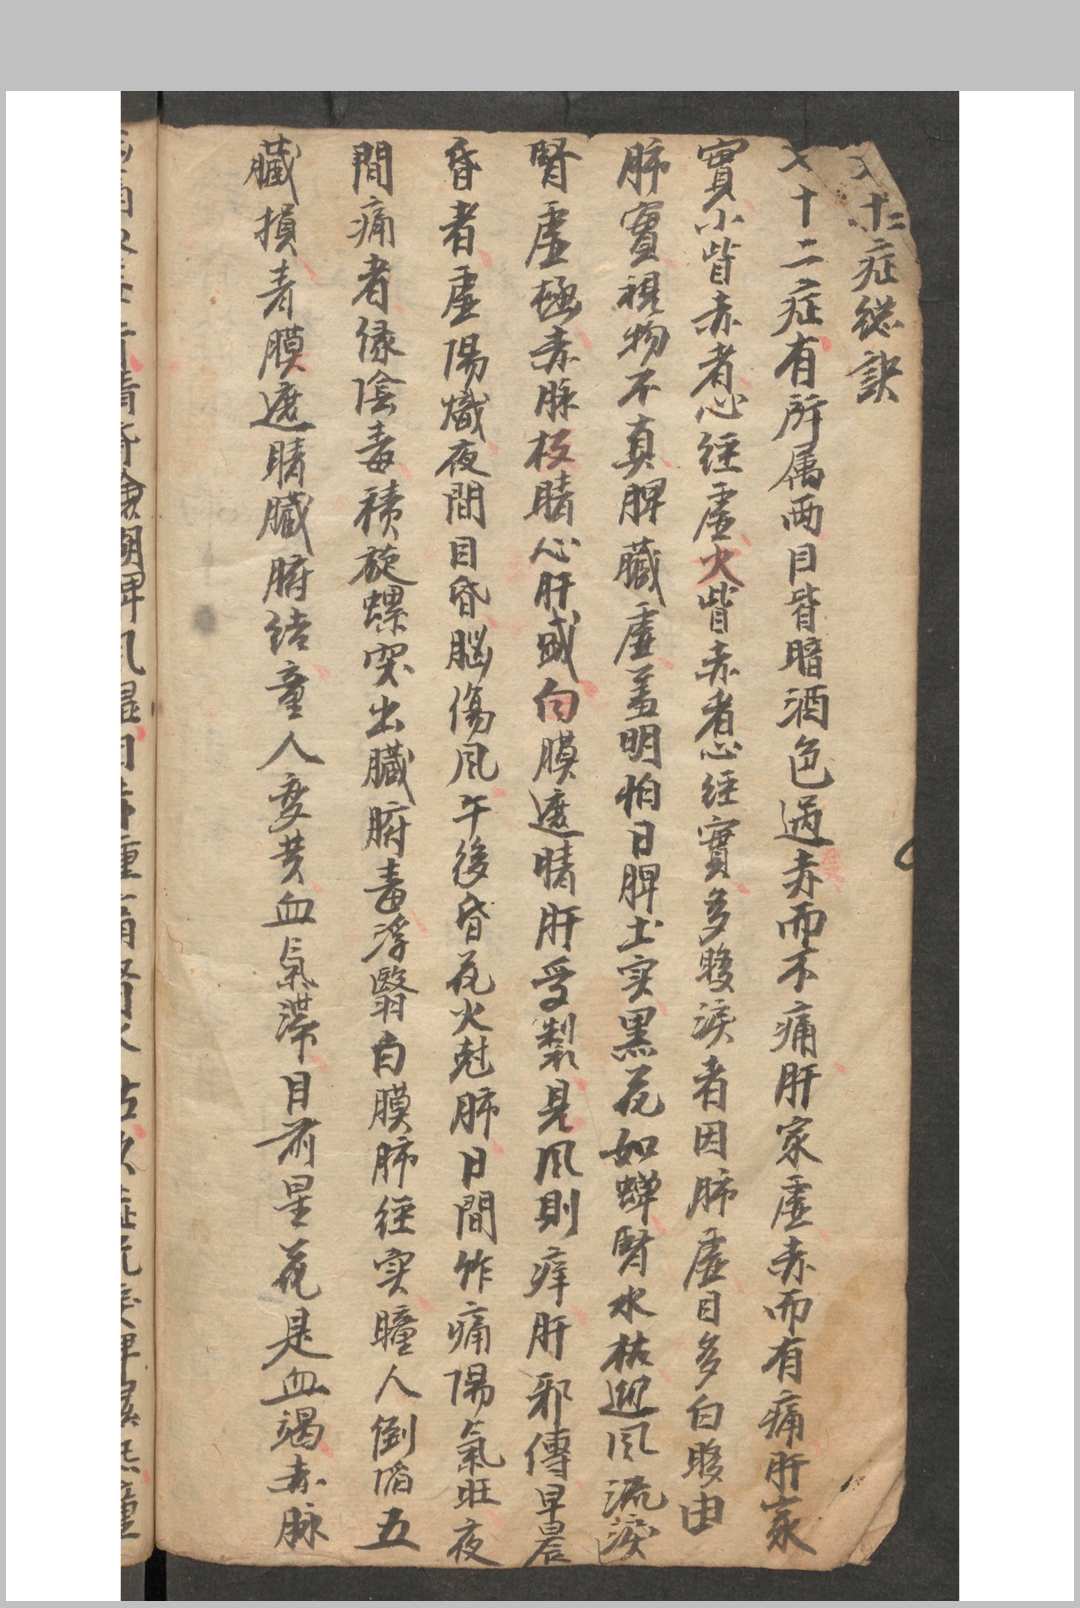 十二症総訣
十二症有所属两目皆暗酒色過赤而不痛肝家虛赤而有痛肝家
實小眥赤者心经虛火眥赤者心经實多眵淚者因肺虛目多白眵由
肺實視物不真脾臟虛羞明怕日脾土实黑花如蝉腎水枯迎風流淚
腎虛極赤脉侵睛心肝盛白膜遮睛肝受製見風則痒肝邪傳早晨
昏者虛陽熾夜間目昏腦傷風午後昏花火尅肺日間作痛陽氣旺夜
間痛者缘陰毒積旋螺突出臟腑毒浮翳白膜肺徑实瞳人倒陷五
臟損青膜遮睛臟腑结童人变黄血氣滯目前星花是血竭赤脉